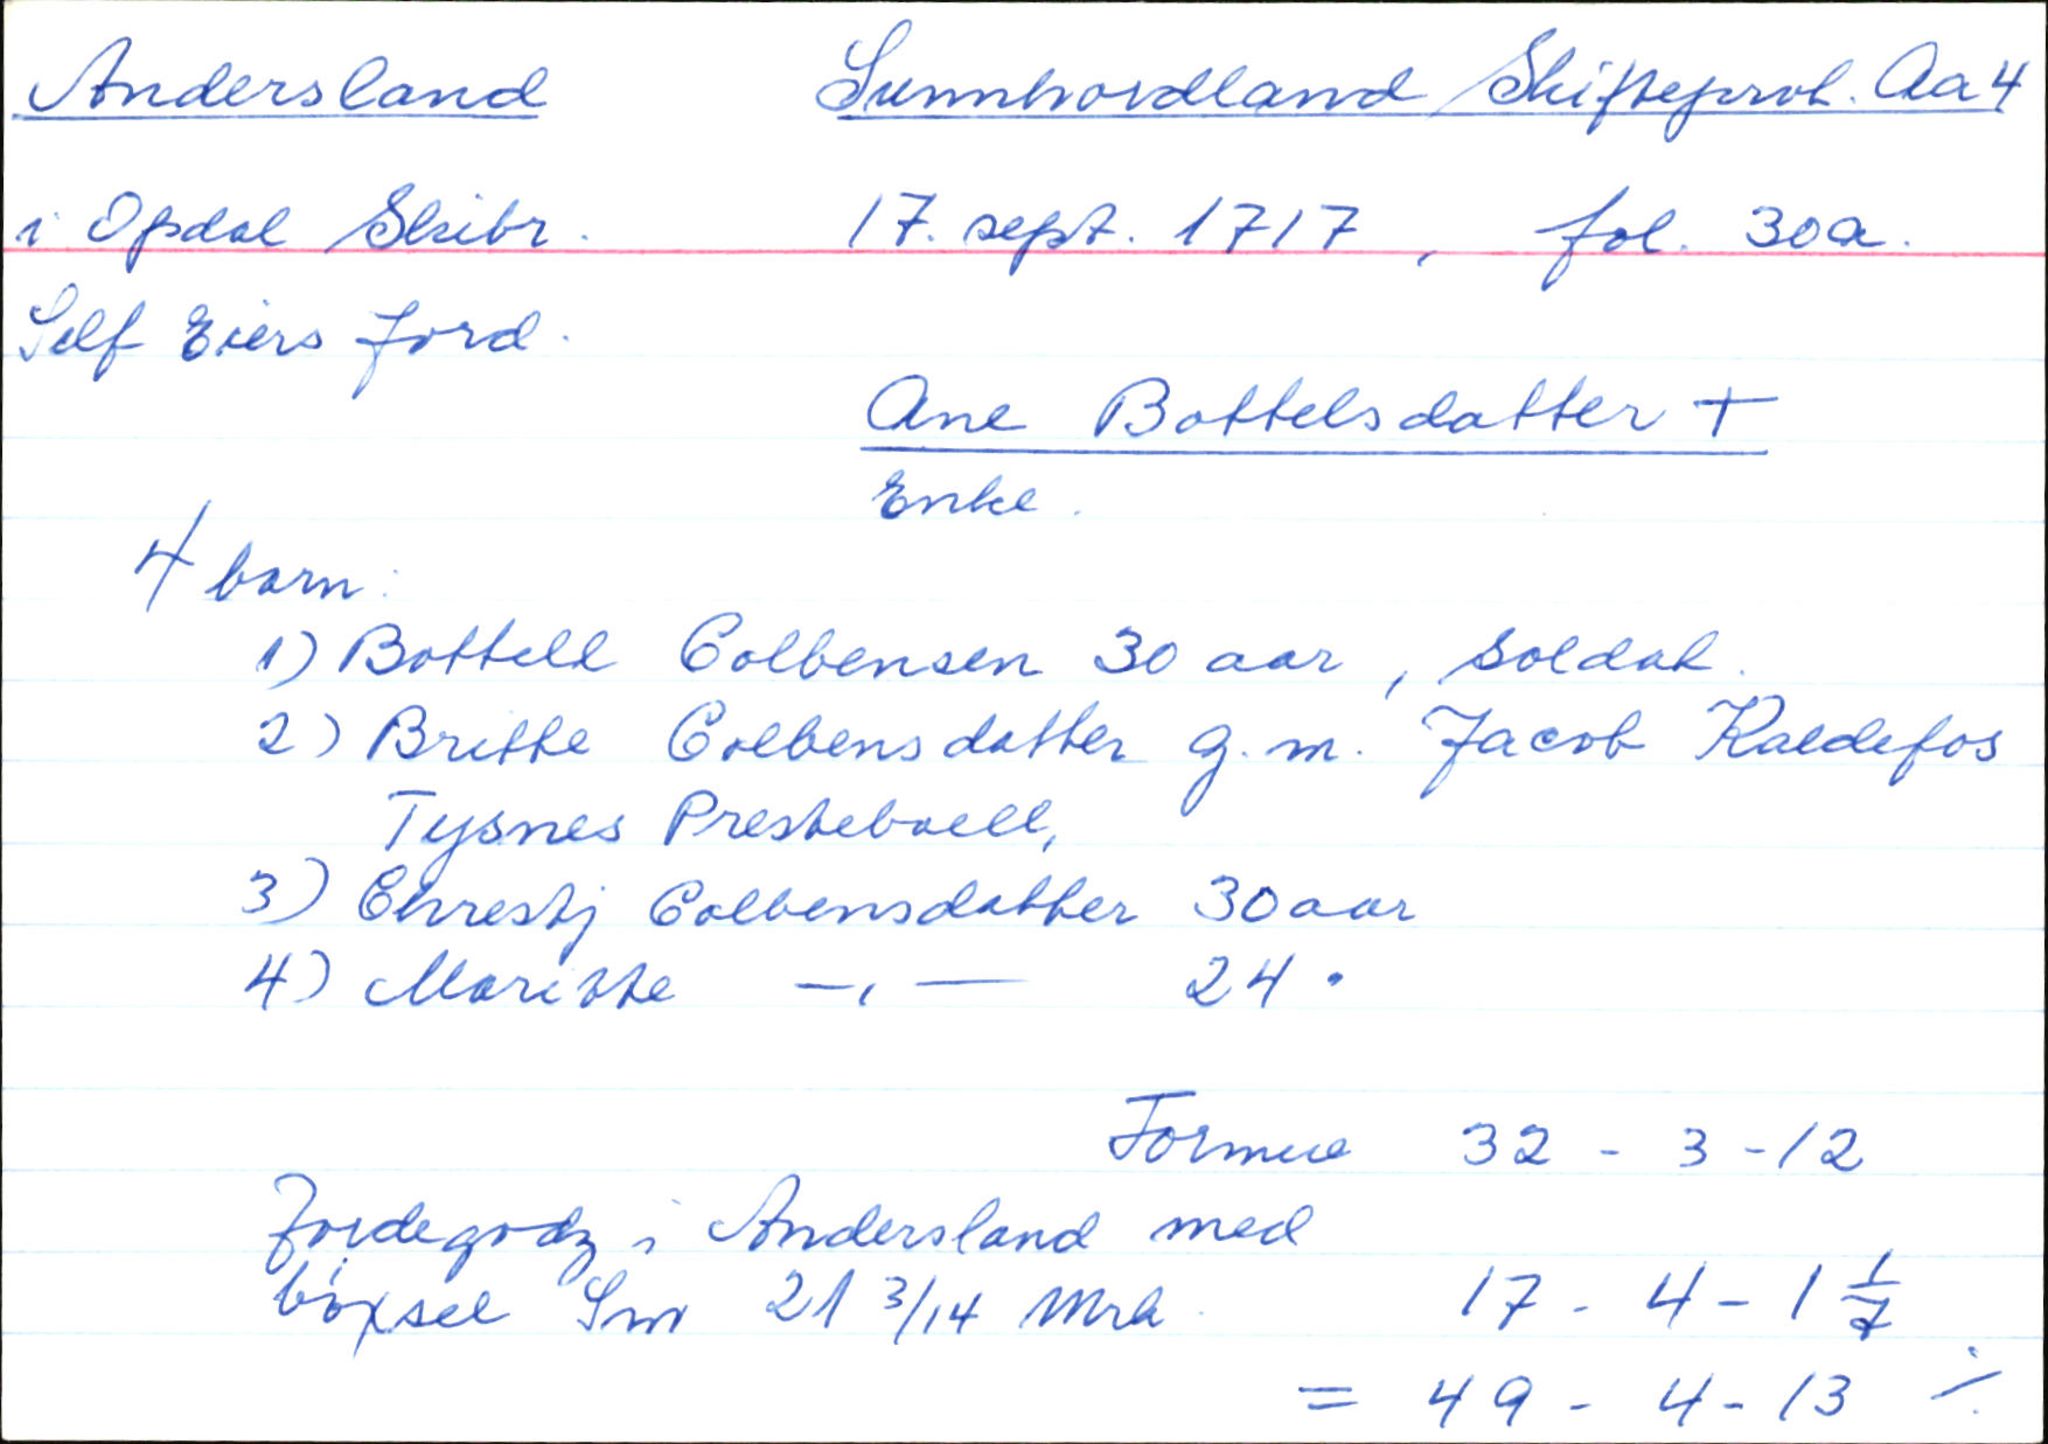 Andersland Sunnhordland Skifteprot. Aa 4
i Opdal Skibr. 17. sept. 1717, fol. 30a.
Self Eiers Jord.
Ane Bottelsdatter +
Enke.
4 barn:
1) Bottell Colbensen 30 aar, soldat.
2) Britte Colbensdatter g. m. Jacob Kaldefos
Tysnes Presteboell,
3) Chrestj Colbensdatter 30 aar
4) Maritte —,— 24 "
Formue 32 - 3 - 12
Jordegodz i Andersland med
böxsel Smr 21 3/14 Mrk 17 - 4 - 1 1/7
= 49 - 4 - 13 ./.